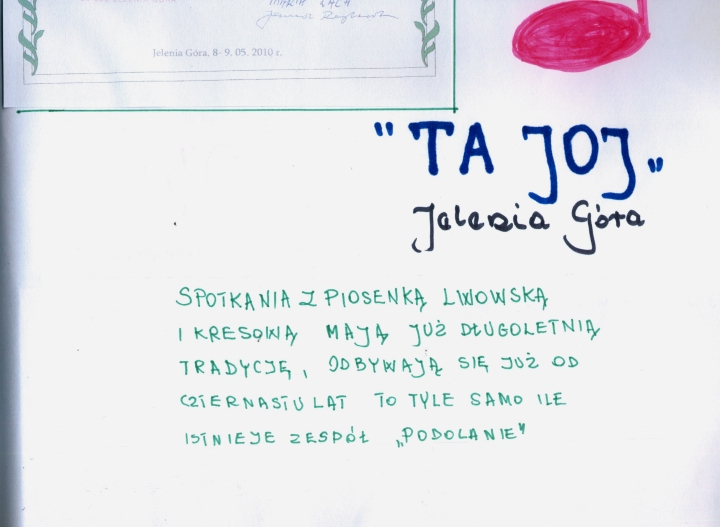 Jelenia Góra, 8- 9. 05. 2010 r.
"TA JOJ„
Jelenia Góra
SPOTKANIA Z PIOSENKĄ LWOWSKĄ
I KRESOWĄ MAJĄ JUŻ DŁUGOLETNIĄ
TRADYCJĘ, ODBYWAJĄ SIĘ JUŻ OD
CZTERNASTU LAT TO TYLE SAMO ILE
ISTNIEJE ZESPÓŁ „PODOLANIE"